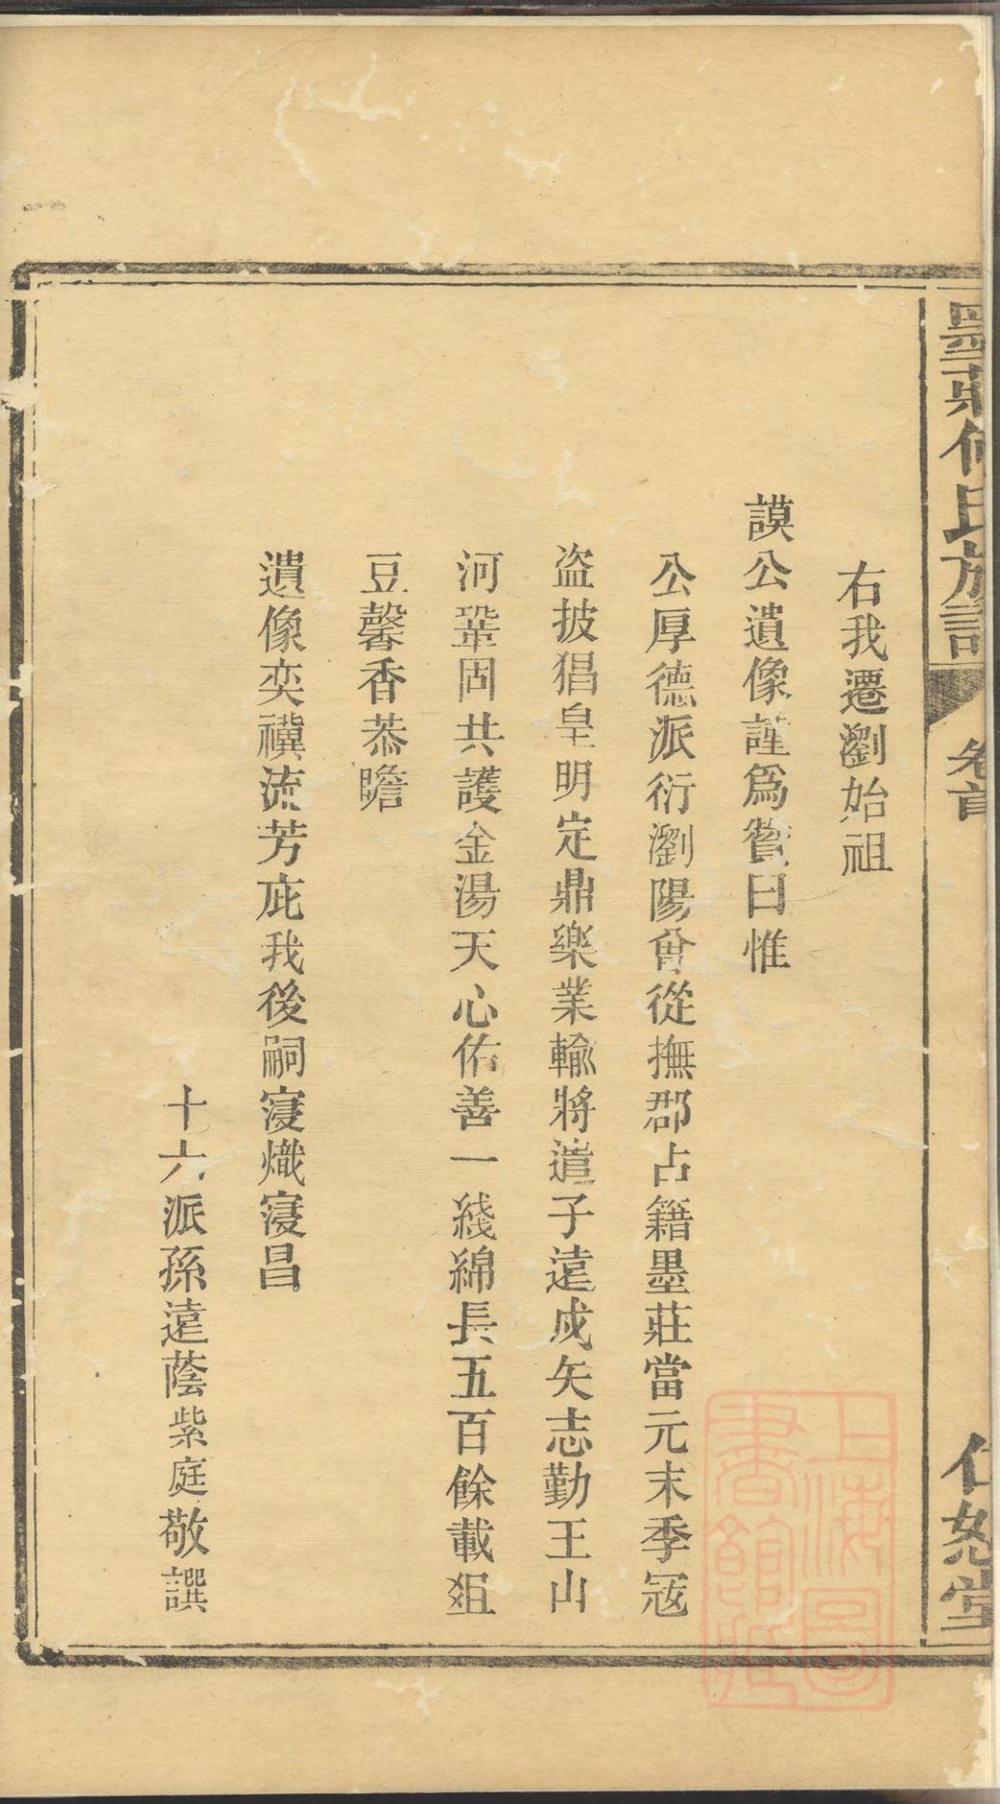 墨莊何氏族譜
卷首
仁恕堂
右我遷瀏始祖
謨公遺像謹爲贊曰惟
公厚德派衍瀏陽曾從撫郡占籍墨莊當元末季寇
盗披猖皇明定鼎樂業輸將遣子遠戍矢志勤王山
河鞏固共護金湯天心佑善一綫綿長五百餘載俎
豆馨香恭瞻
遺像奕禩流芳庇我後嗣寖熾寖昌
十六派孫遠蔭紫庭敬譔
上海圖
書館藏